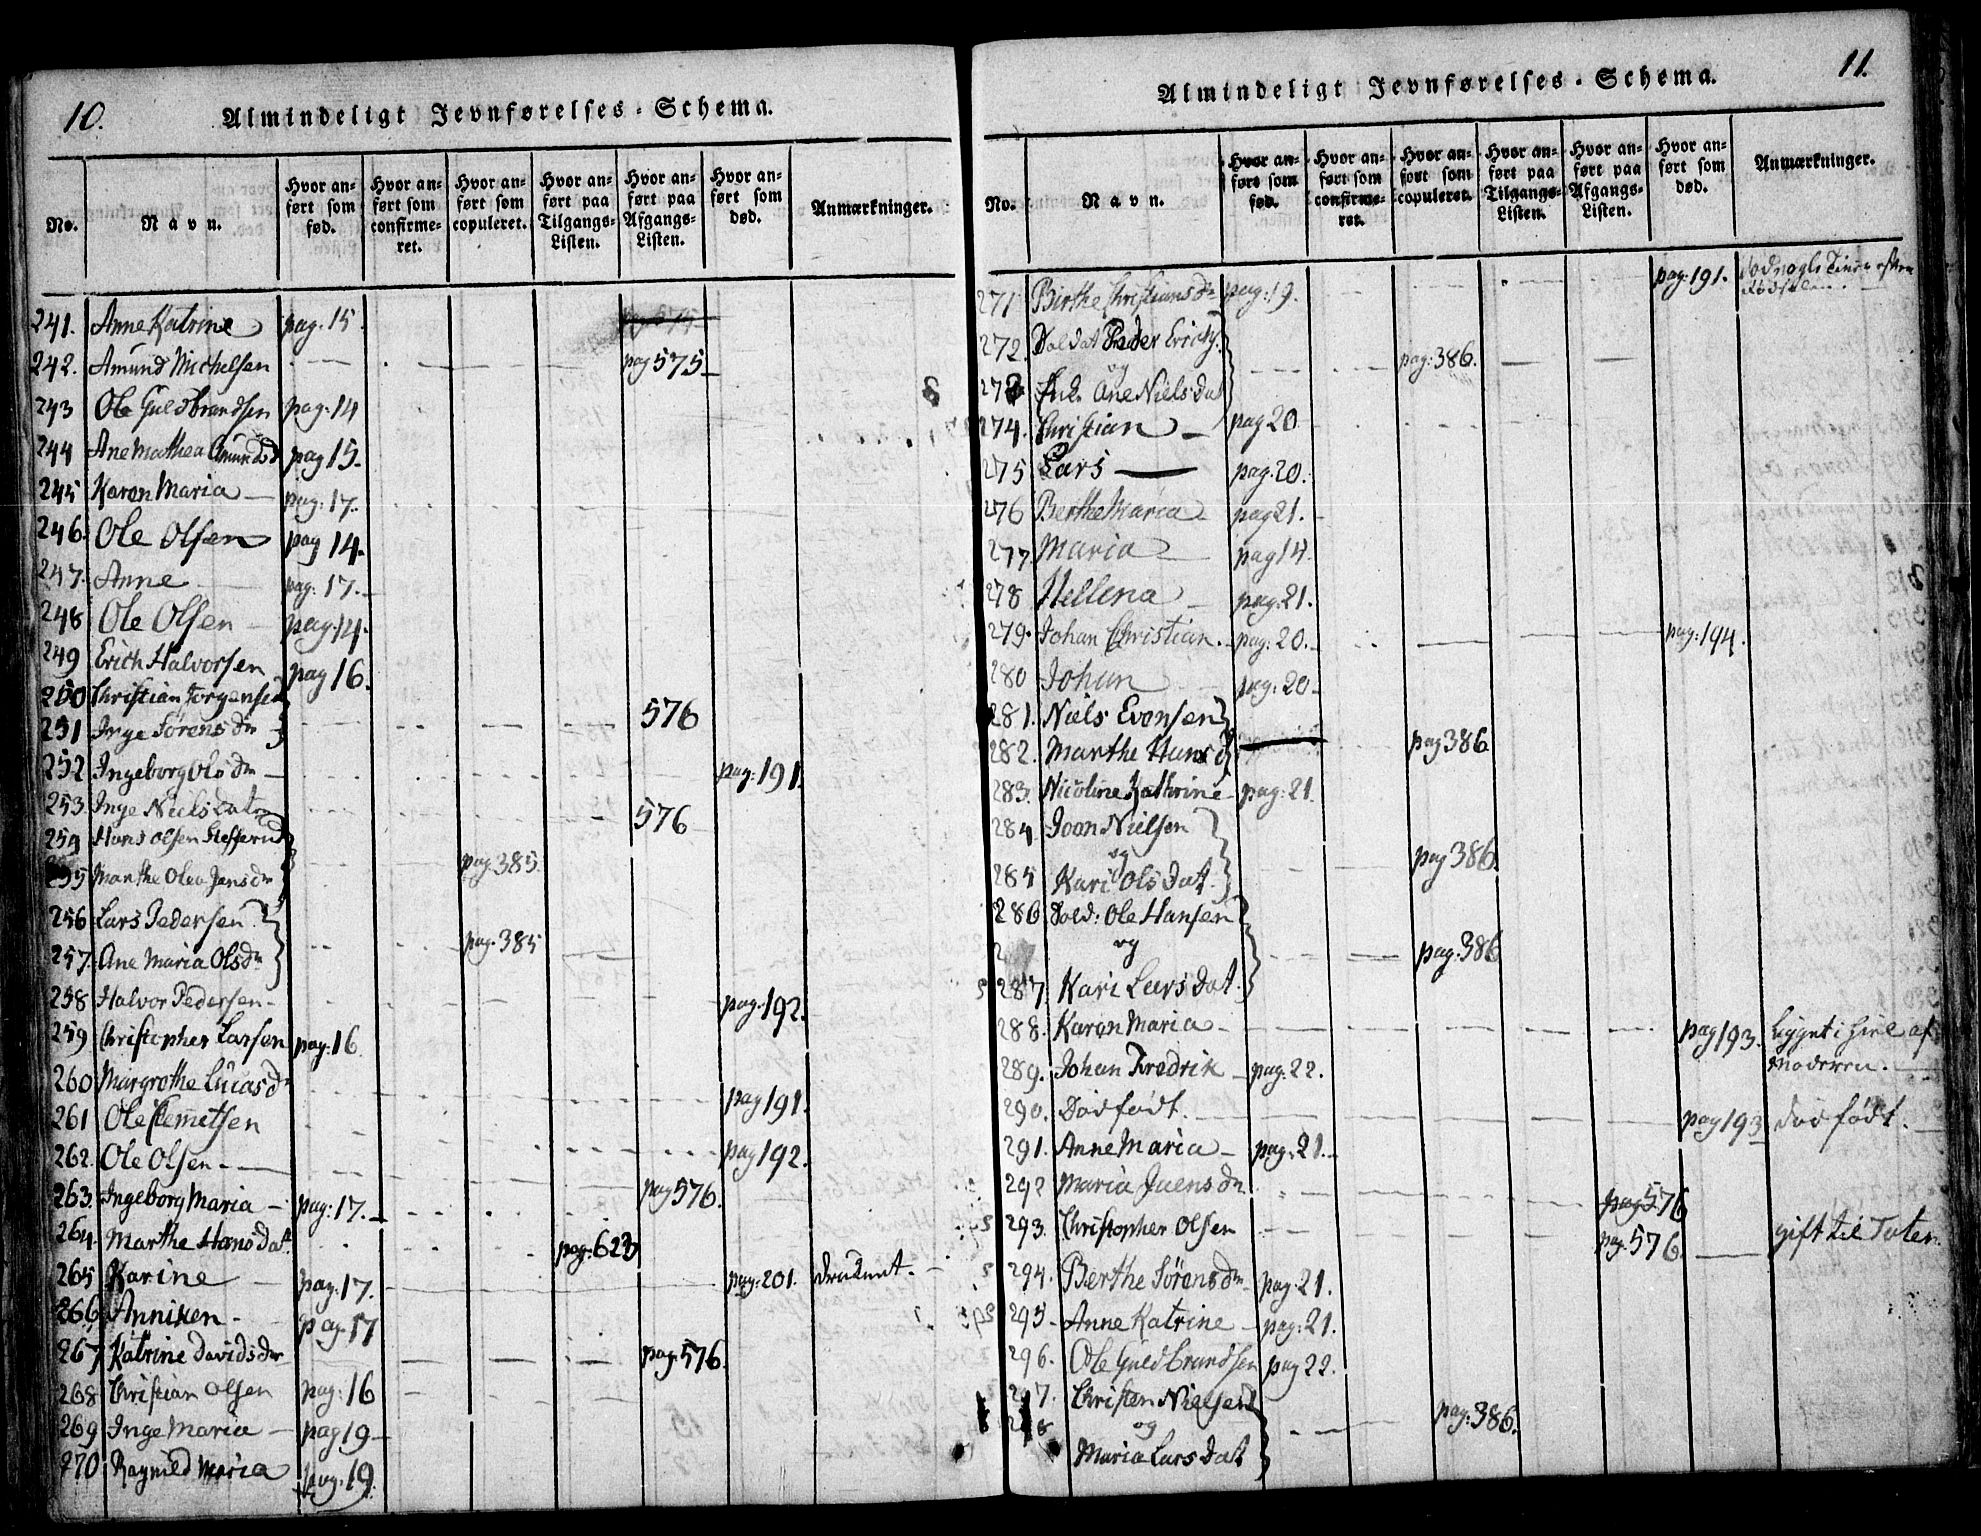 10.
Almindeligt Jevnførelses-Schema.
No.
Navn.
Hvor anført som fød.
Hvor anført som confirmeret.
Hvor anført som copuleret.
Hvor anført paa Tilgangs-Listen.
Hvor anført paa Afgangs-Listen.
Hvor anført som død.
Anmærkninger.
241. Anne Katrine pag. 15.
242. Amund Michelsen pag 575
243 Ole Guldbrandsen pag. 14
244 Ane Mathea Amundsd pag 15.
245 Karen Maria pag. 17.
246. Ole Olsen pag 14.
247. Anne pag. 17.
248 Ole Olsen pag. 14.
249 Erich Halvorsen pag 16.
250 Christian Jorgensen
251 Inge Sørens dr 576
252 Ingeborg Ols dr pag: 191.
253. Inge Niels Datr 576
254 Hans Olsen
255 Marthe Olea Jens dr pag. 385.
256 Lars Pedersen
257. Ane Maria Olsdr pag. 385
258 Halvor Pedersen pag. 192.
259 Christopher Larsen pag. 16
260 Margrethe Lucas dr pag 191.
261 Ole Clemetsen pag 192.
262. Ole Olsen pag 576.
263. Ingeborg Maria pag: 17.
264. Marthe Hans Dat. pag. 623
265 Karine pag. 17. pag: 201. druknet.
266. Anniken pag. 17
267 Katrine Davids dr pag. 576.
268 Christian Olsen pag: 16
269 Inge Maria pag 19
270 Ragnild Maria pag. 19.
11.
Almindeligt Jevnførelses-Schema.
No.
Navn.
Hvor anført som fød.
Hvor anført som confirmeret.
Hvor anført som copuleret.
Hvor anført paa Tilgangs-Listen.
Hvor anført paa Afgangs-Listen.
Hvor anført som død.
Anmærkninger.
271 Birthe Christians dr pag: 19. pag: 191.
272. Soldat Peder
og pag: 386.
273 Ane Niels Dat
274. Christian pag 20
275 Lars pag. 20.
276 Berthe Maria pag 21.
277. Maria pag 14.
278 Hellena pag. 21.
279. Johan Christian. pag: 20. pag: 194.
280 Johan pag: 20
281. Niels Evensen
282. Marthe Hans d pag 386
283. Nicoline Kathrine pag: 21.
284 Joon Nielsen
og pag 386.
285 Kari Ols Dat.
286 Sold: Ole Hansen
og pag. 386
287. Kari Lars Dat.
288. Karen Maria pag 193. af
Moderen.
289. Johan Fredrik pag. 22.
290. Dødfødt. pag 193 dødfødt.
291. Anne Maria pag: 21.
292 Maria Juens dr pag 576
293. Christopher Olsen pag. 576. gift til Toten
294. Berthe Sørens dr pag: 21.
295 Anne Katrine pag: 21.
296. Ole Guldbrandsen pag 22.
297. Christen Nielsen
298 og pag: 386.
Maria Lars Dat